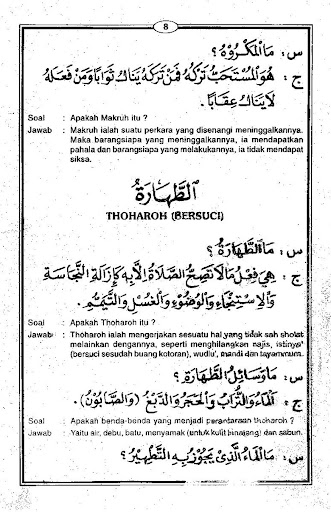 8
س : مَا الْمَكْرُوْهُ ؟
ج : هُوَ الْمُسْتَحَبُّ تَرْكُهُ فَمَنْ تَرَكَهُ يَنَالُ ثَوَابًا وَمَنْ فَعَلَهُ
لَا يَنَالُ عِقَابًا.
Soal : Apakah Makruh itu ?
Jawab : Makruh ialah suatu perkara yang disenangi meninggalkannya.
Maka barangsiapa yang meninggalkannya, ia mendapatkan
pahala dan barangsiapa yang melakukannya, ia tidak mendapat
siksa.
الطَّهَارَةُ
THOHAROH (BERSUCI)
س : مَا الطَّهَارَةُ ؟
ج : هِيَ فِعْلُ مَا لَا تَصِحُّ الصَّلَاةُ اِلَّا بِهِ كَاِزَالَةِ النَّجَاسَةِ
وَالْاِسْتِنْجَاءِ وَالْوُضُوْءِ وَالْغُسْلِ وَالتَّيَمُّمِ.
Soal : Apakah Thoharoh itu ?
Jawab : Thoharoh ialah mengerjakan sesuatu hal yang tidak sah sholat
melainkan dengannya, seperti menghilangkan najis, istinja'
(bersuci sesudah buang kotoran), wudlu', mandi dan tayammum.
س : مَا وَسَائِلُ الطَّهَارَةِ ؟
ج : اَلْمَاءُ وَالتُّرَابُ وَالْحَجَرُ وَالدَّبْغُ (وَالصَّابُوْنُ).
Soal : Apakah benda-benda yang menjadi perantaraan thoharoh ?
Jawab : Yaitu air, debu, batu, menyamak (untuk kulit binatang) dan sabun.
س : مَا الْمَاءُ الَّذِيْ يَجُوْزُ بِهِ التَّطْهِيْرُ ؟